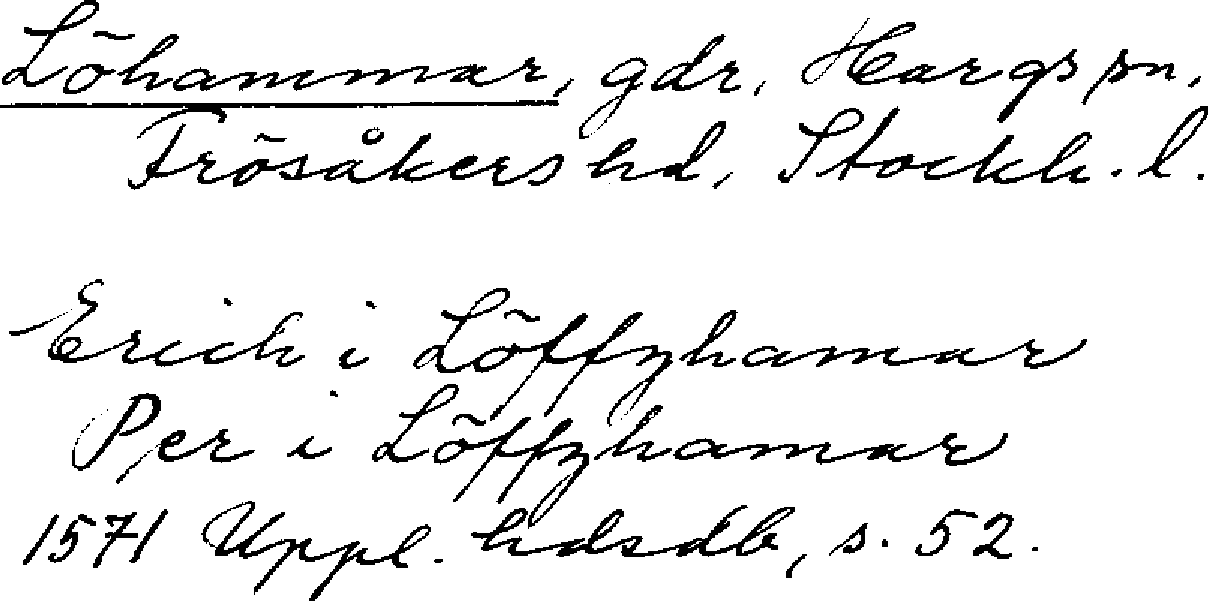 Löhammar, gdr, Hargs sn,
Frösåkers hd, Stockh. l.
Erich i Löffzhamar
Per i Löffzhamar
1571 Uppl. hdsdb, s. 52.